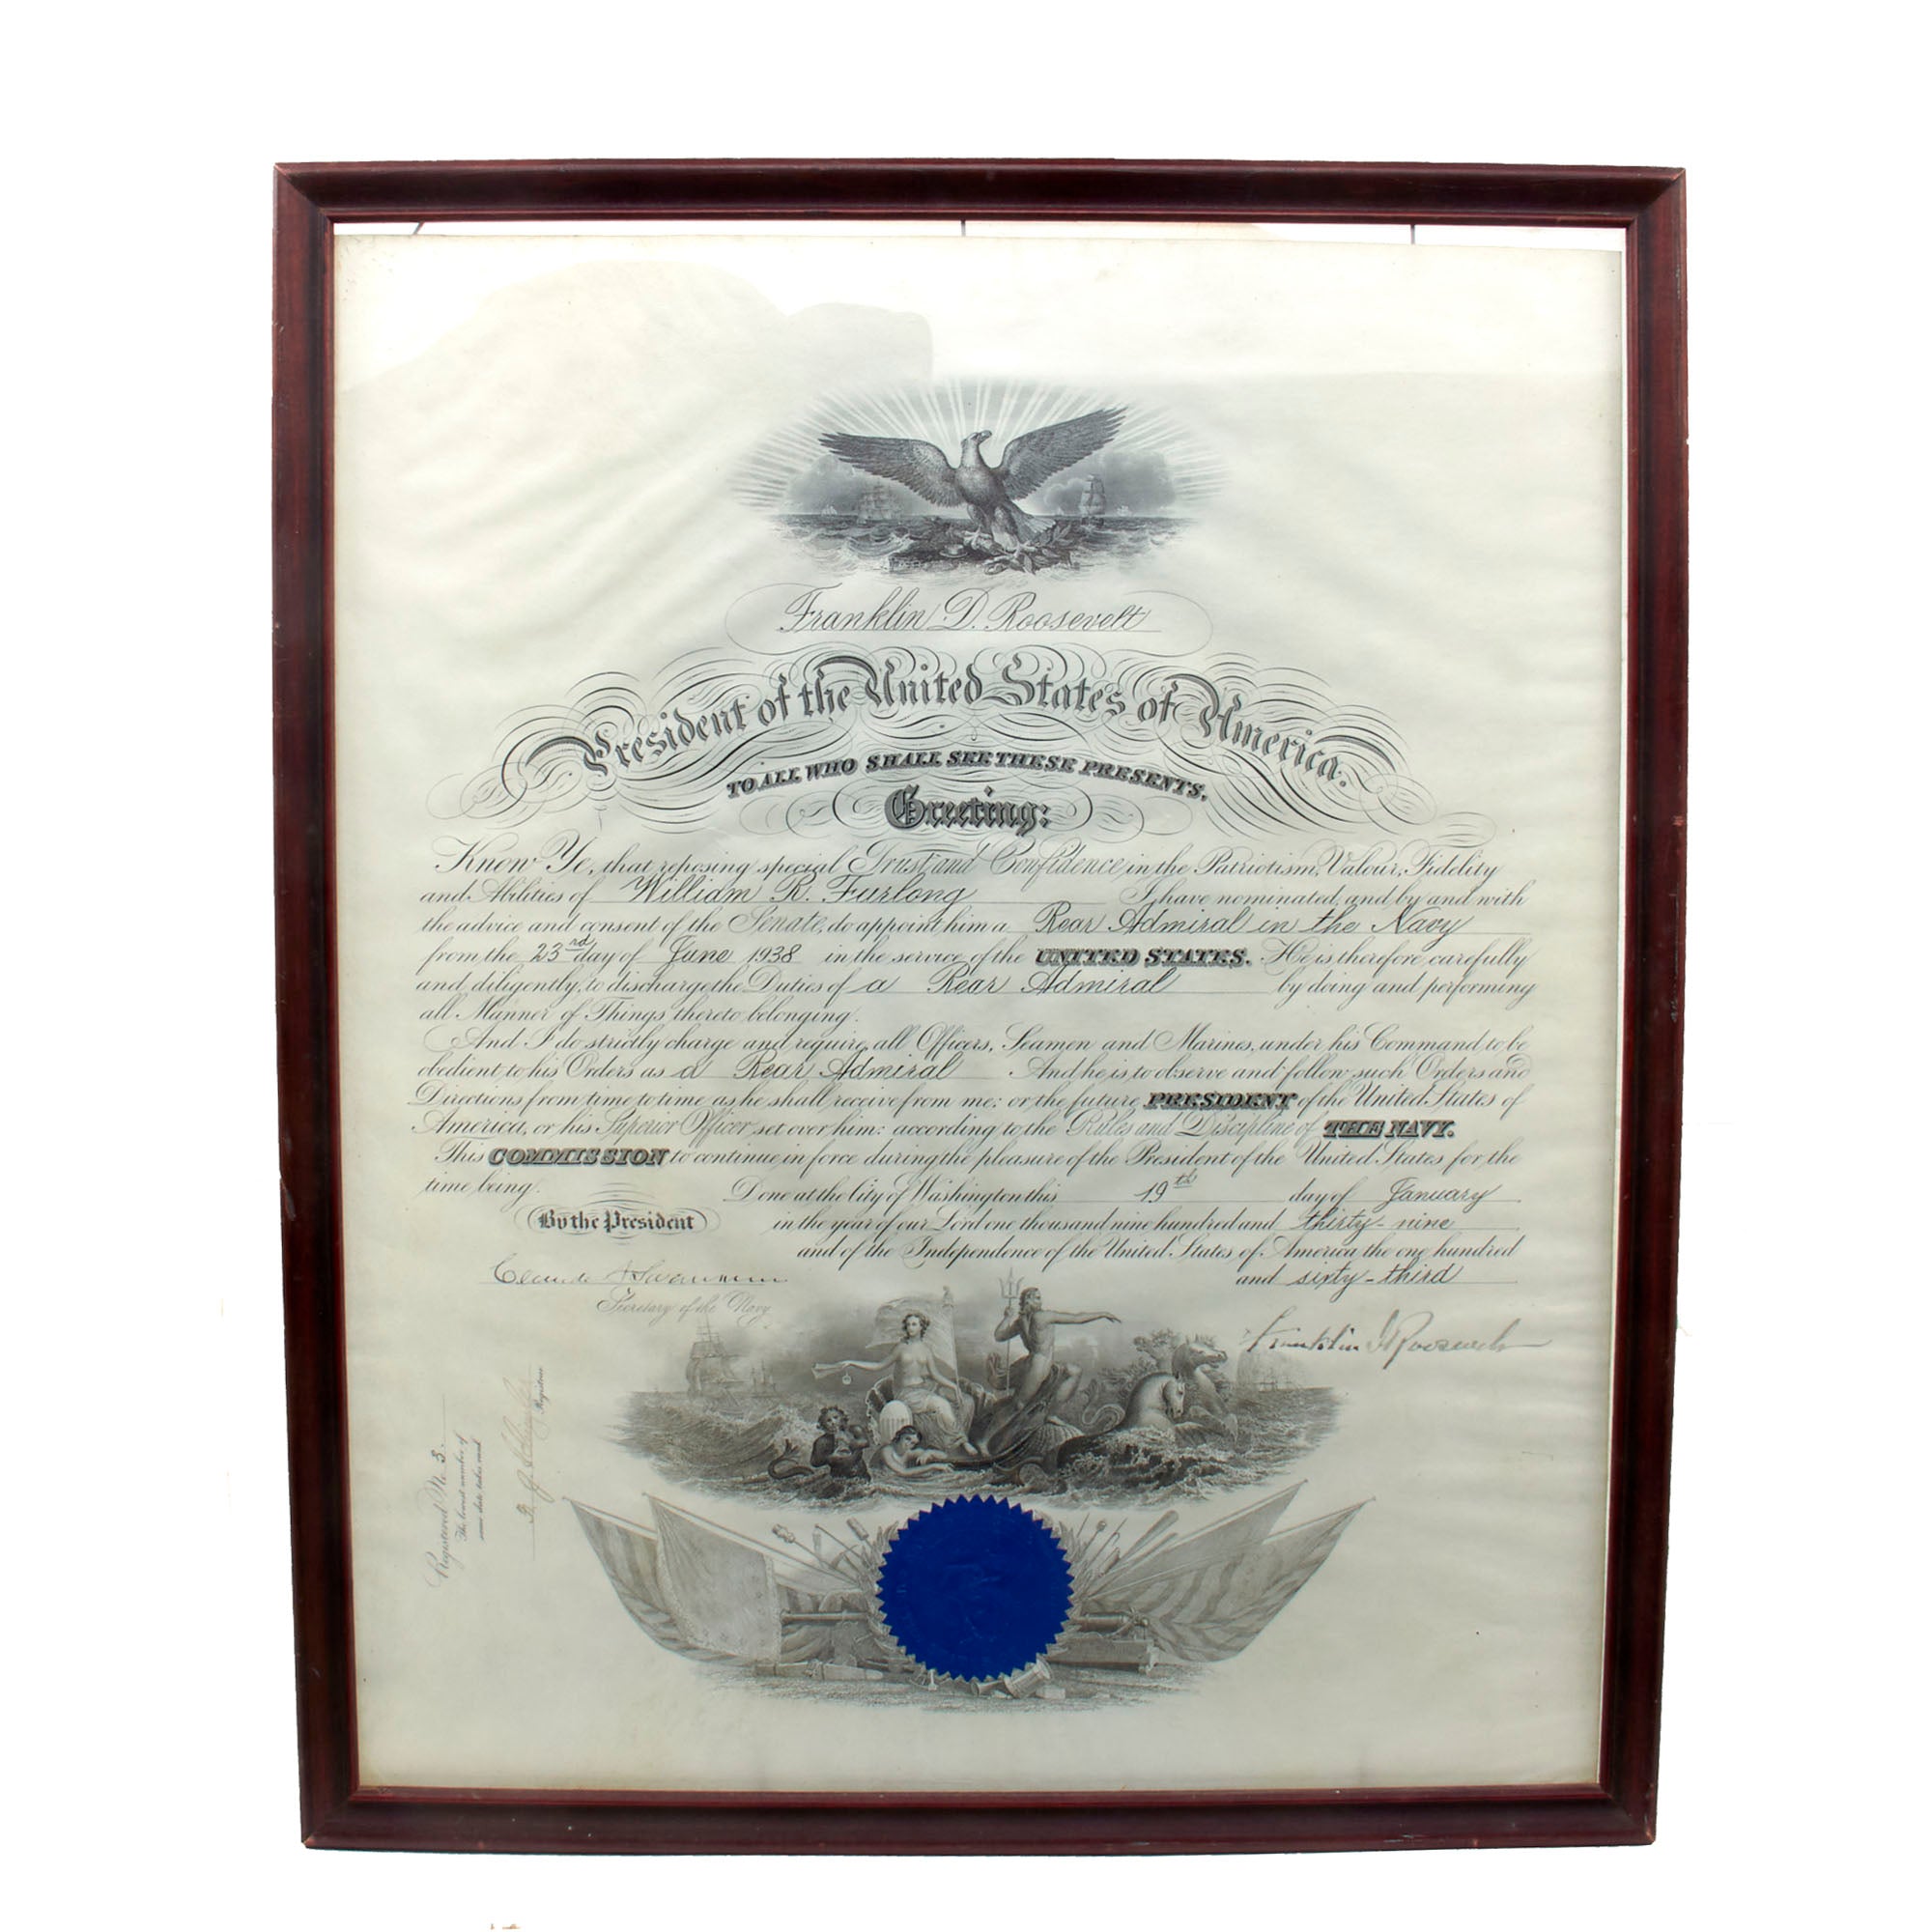 Franklin D. Roosevelt
President of the United States of America.
TO ALL WHO SHALL SEE THESE PRESENTS,
Greeting:
Know Ye, that reposing special Trust and Confidence in the Patriotism, Valour, Fidelity
and Abilities of William R. Furlong I have nominated, and by and with
the advice and consent of the Senate, do appoint him a Rear Admiral in the Navy
from the 23rd day of June 1938 in the service of the UNITED STATES. He is therefore carefully
and diligently, to discharge the Duties of a Rear Admiral by doing and performing
all Manner of Things thereto belonging.
And I do strictly charge and require, all Officers, Seamen and Marines, under his Command, to be
obedient to his Orders as a Rear Admiral. And he is to observe and follow such Orders and
Directions from time to time as he shall receive from me: or the future PRESIDENT of the United States of
America, or his Superior Officer set over him: according to the Rules and Discipline of THE NAVY.
This COMMISSION to continue in force during the pleasure of the President of the United States for the
time being. Done at the City of Washington this 19th day of January
By the President in the year of our Lord one thousand nine hundred and thirty-nine
and of the Independence of the United States of America the one hundred
and sixty-third
Claude A Swanson
Secretary of the Navy
Franklin D Roosevelt
Registered No. 3.
The lowest number of
Registrar